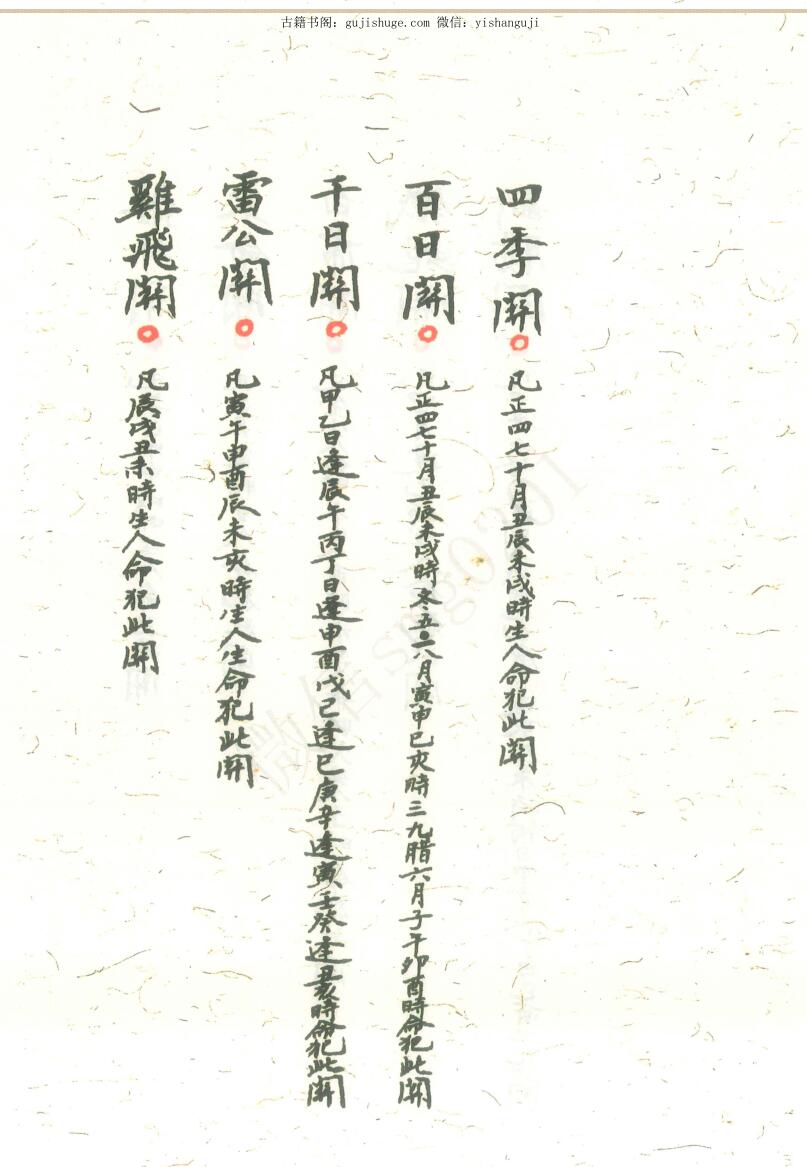 古籍书阁：gujishuge.com 微信：yishanguji
四季關 凡正四七十月丑辰未戌時生人命犯此關
百日關 凡正四七十月丑辰未戌時冬五二八月寅申巳亥時三九腊六月子午卯酉時命犯此關
千日關 凡甲乙日逢辰午丙丁日逢申酉戊己逢巳庚辛逢寅壬癸逢丑亥時命犯此關
雷公關 凡寅午申酉辰未亥時生人生命犯此關
雞飛關 凡辰戌丑未時生人命犯此關